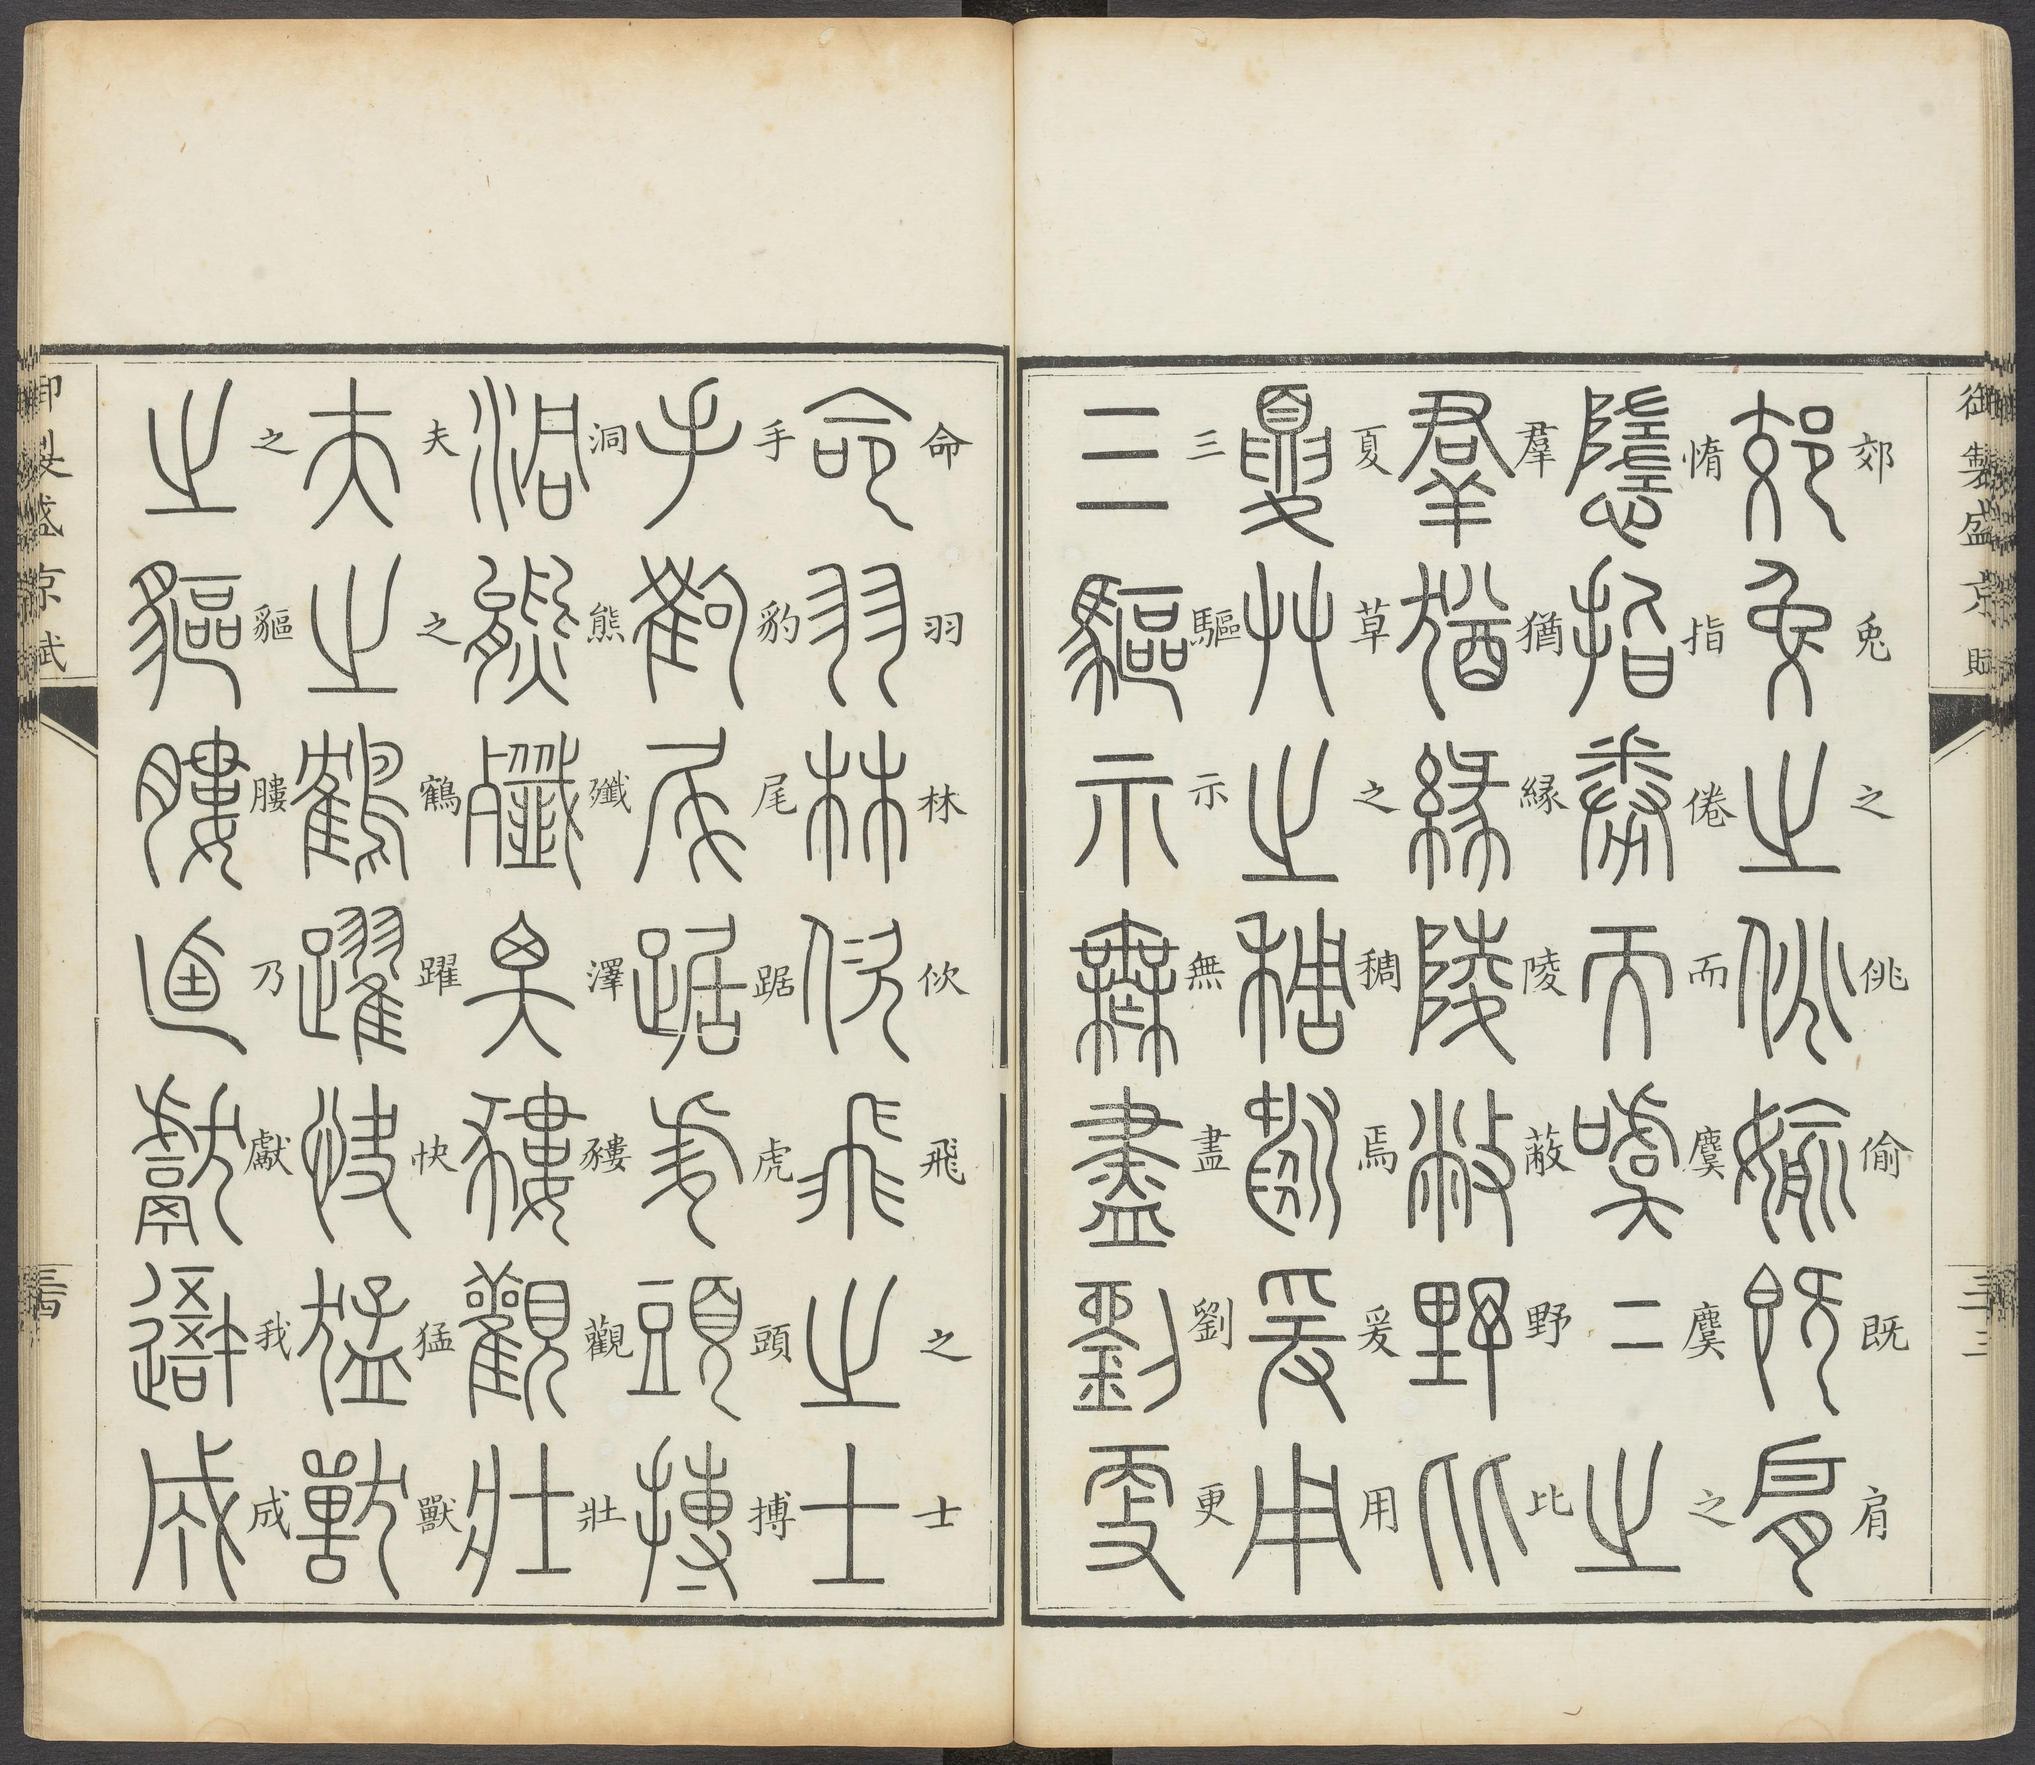 御製盛京賦
三十三
郊兎之佻偷既肩
惰指倦而麌麌之
羣猶緣陵蔽野比
夏草之稠焉爰用
三驅示無盡劉更
命羽林佽飛之士
手豹尾踞虎頭搏
洞熊殲澤貗觀壯
夫之鶴躍快猛獸
之貙膢乃獻我成
御製盛京賦
三十四